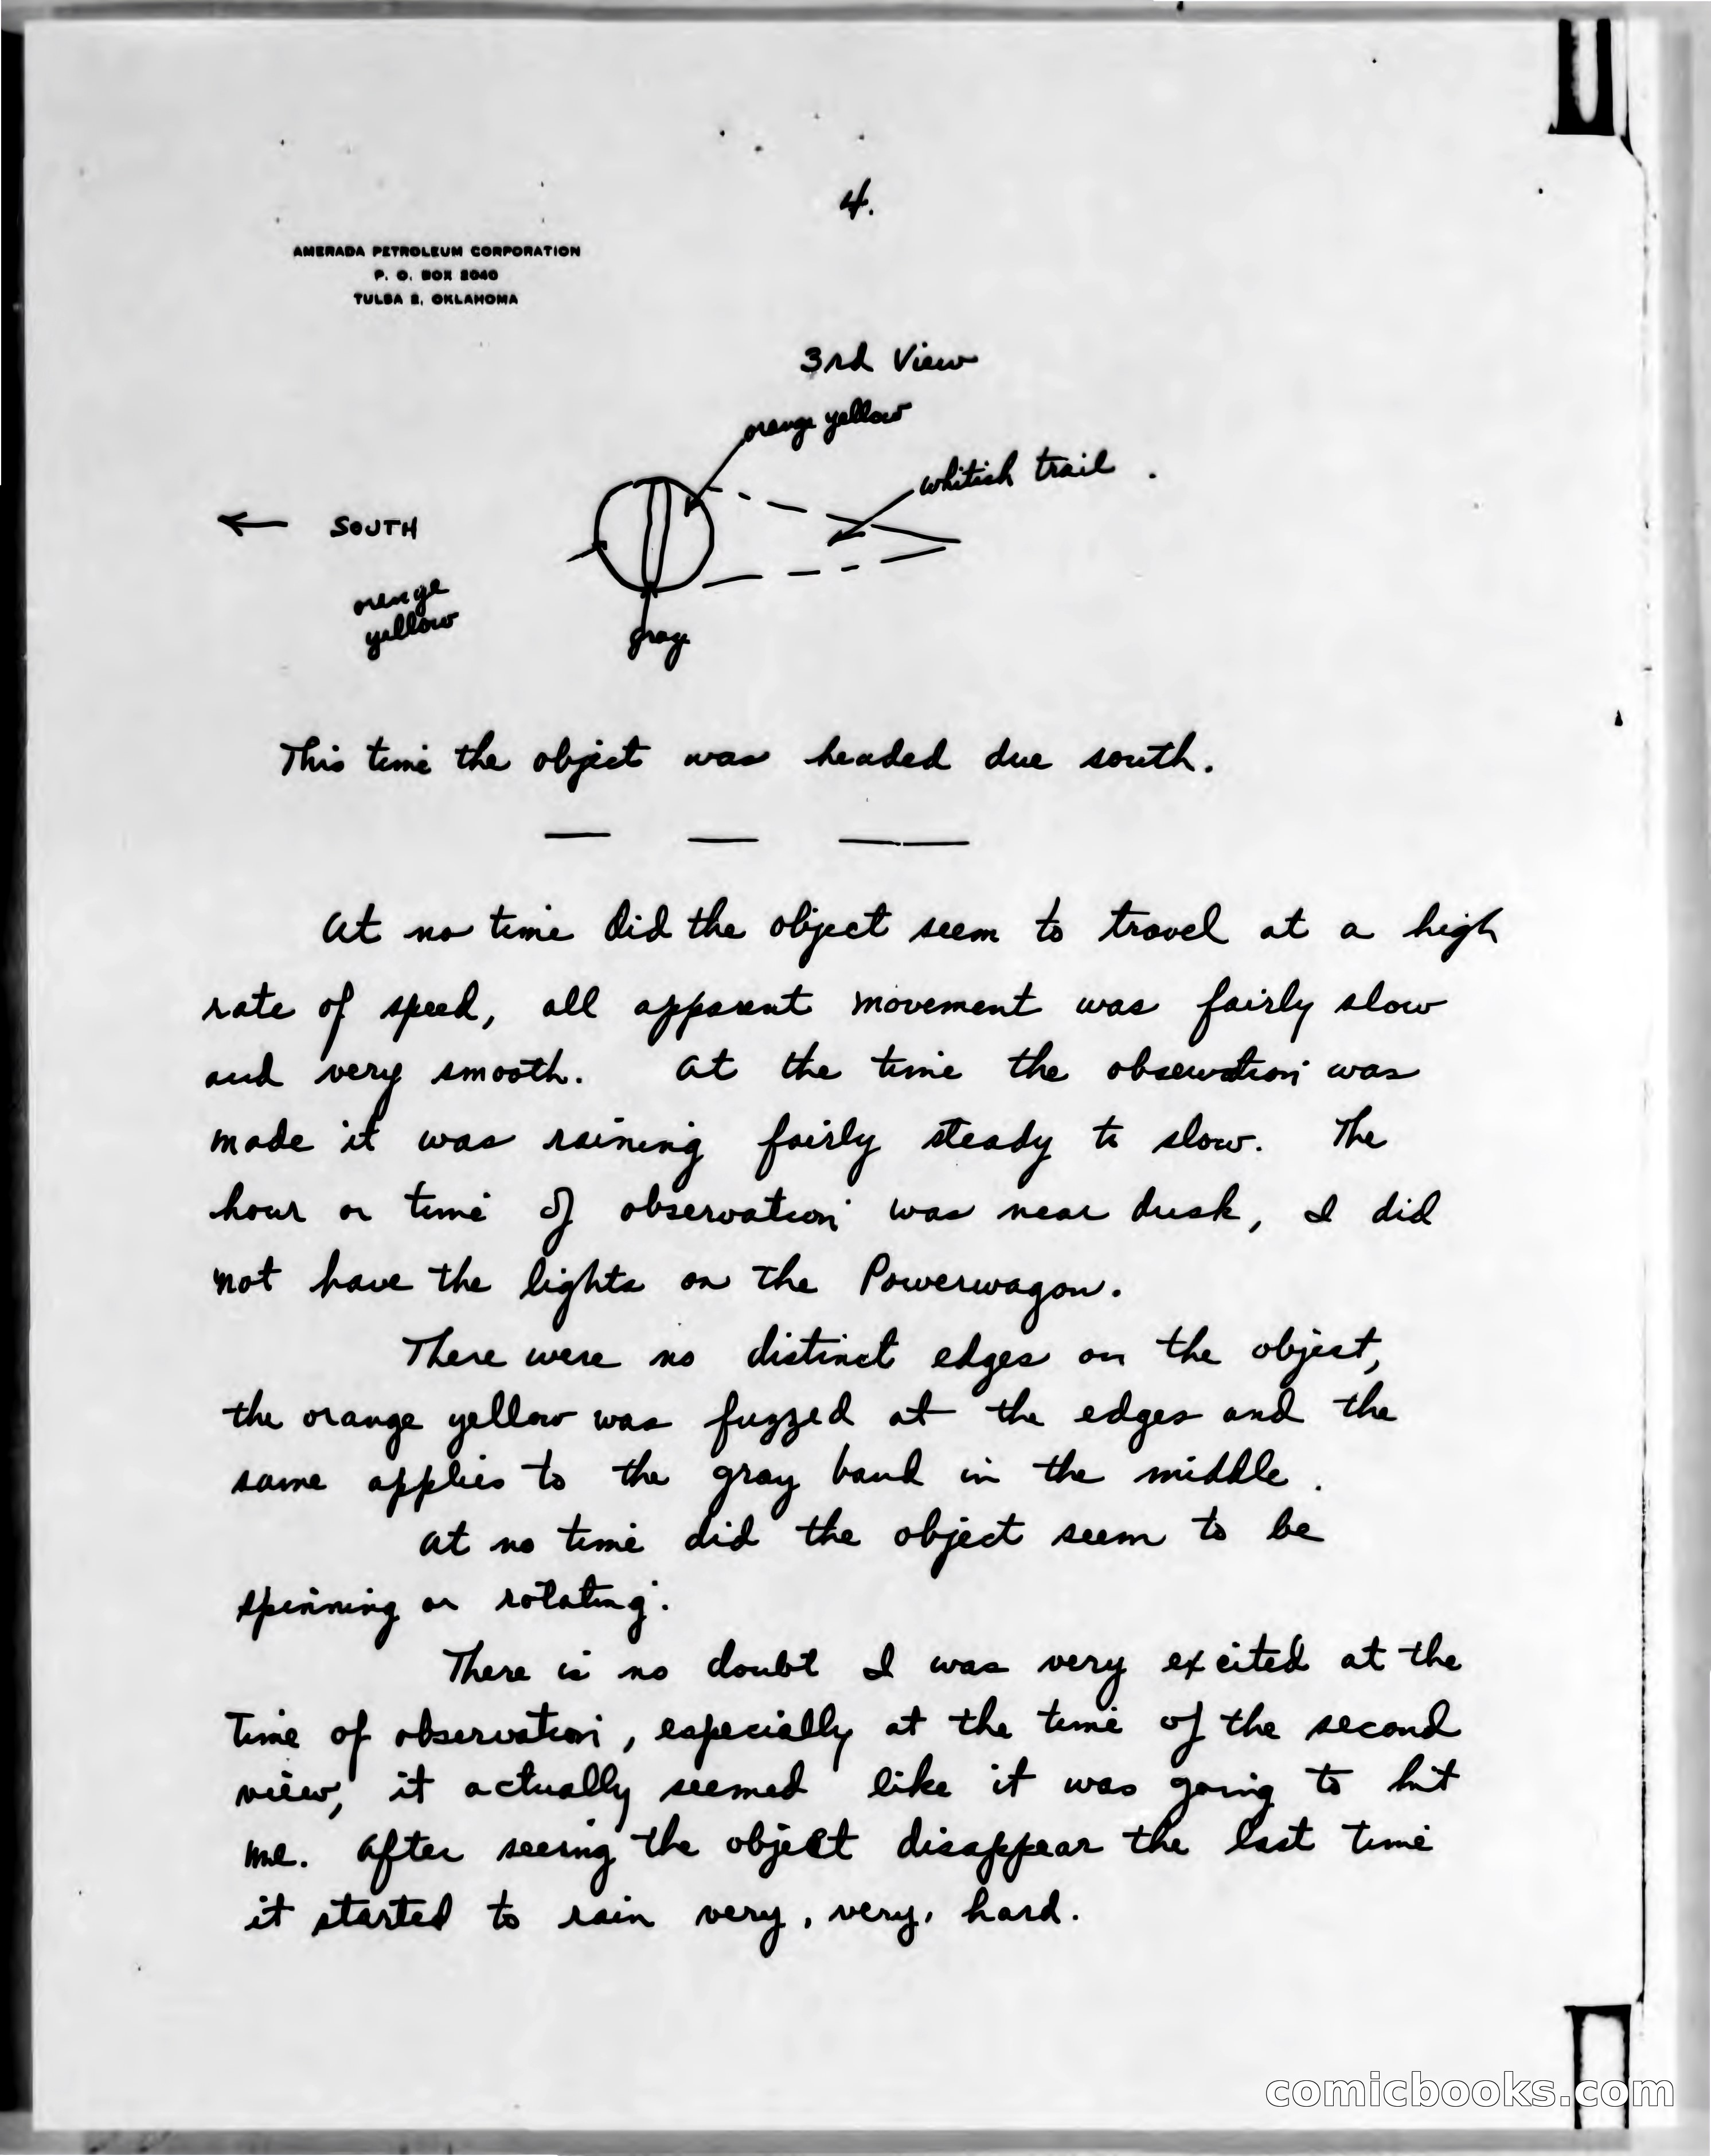 4.
AMERADA PETROLEUM CORPORATION
P. O. BOX 2040
TULSA 2, OKLAHOMA
3rd View
orange yellow
whitish trail .
← SOUTH
orange
yellow
gray
This time the object was headed due south.
At no time did the object seem to travel at a high
rate of speed, all apparent movement was fairly slow
and very smooth. At the time the observation was
made it was raining fairly steady to slow. The
hour or time of observation was near dusk, I did
not have the lights on the Powerwagon.
There were no distinct edges on the object,
the orange yellow was fuzzed at the edges and the
same applies to the gray band in the middle.
At no time did the object seem to be
spinning or rotating.
There is no doubt I was very excited at the
time of observation, especially at the time of the second
view, it actually seemed like it was going to hit
me. After seeing the object disappear the last time
it started to rain very, very, hard.
comicbooks.com